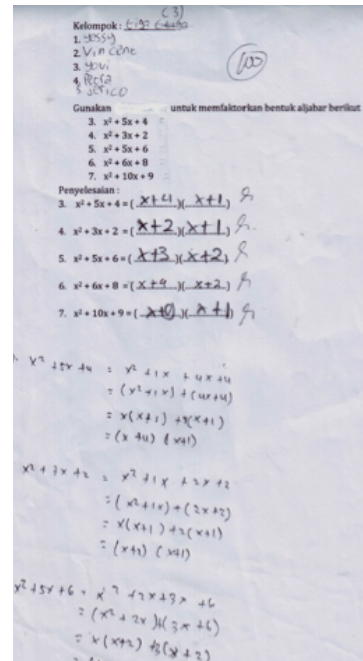 (3)
Kelompok : tiga
1. yossy
2. Vincent
3. yovi
4.
5. Jerico
100
Gunakan untuk memfaktorkan bentuk aljabar berikut
3. x² + 5x + 4
4. x² + 3x + 2
5. x² + 5x + 6
6. x² + 6x + 8
7. x² + 10x + 9
Penyelesaian :
3. x² + 5x + 4 = ( x+4 )( x+1 )
4. x² + 3x + 2 = ( x+2 )( x+1 )
5. x² + 5x + 6 = ( x+3 )( x+2 )
6. x² + 6x + 8 = ( x+4 )( x+2 )
7. x² + 10x + 9 = ( x+9 )( x+1 )
x² + 5x + 4 = x² + 1x + 4x + 4
= (x² + 1x) + (4x+4)
= x(x+1) + 4(x+1)
= (x+4) (x+1)
x² + 3x + 2 = x² + 1x + 2x + 2
= (x² + 1x) + (2x+2)
= x(x+1) + 2(x+1)
= (x+2) (x+1)
x² + 5x + 6 = x² + 2x + 3x + 6
= (x² + 2x) + (3x + 6)
= x(x+2) + 3(x+2)